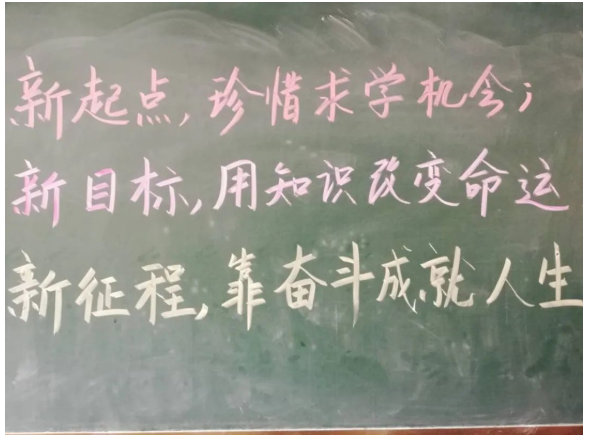 新起点,珍惜求学机会;
新目标,用知识改变命运
新征程,靠奋斗成就人生